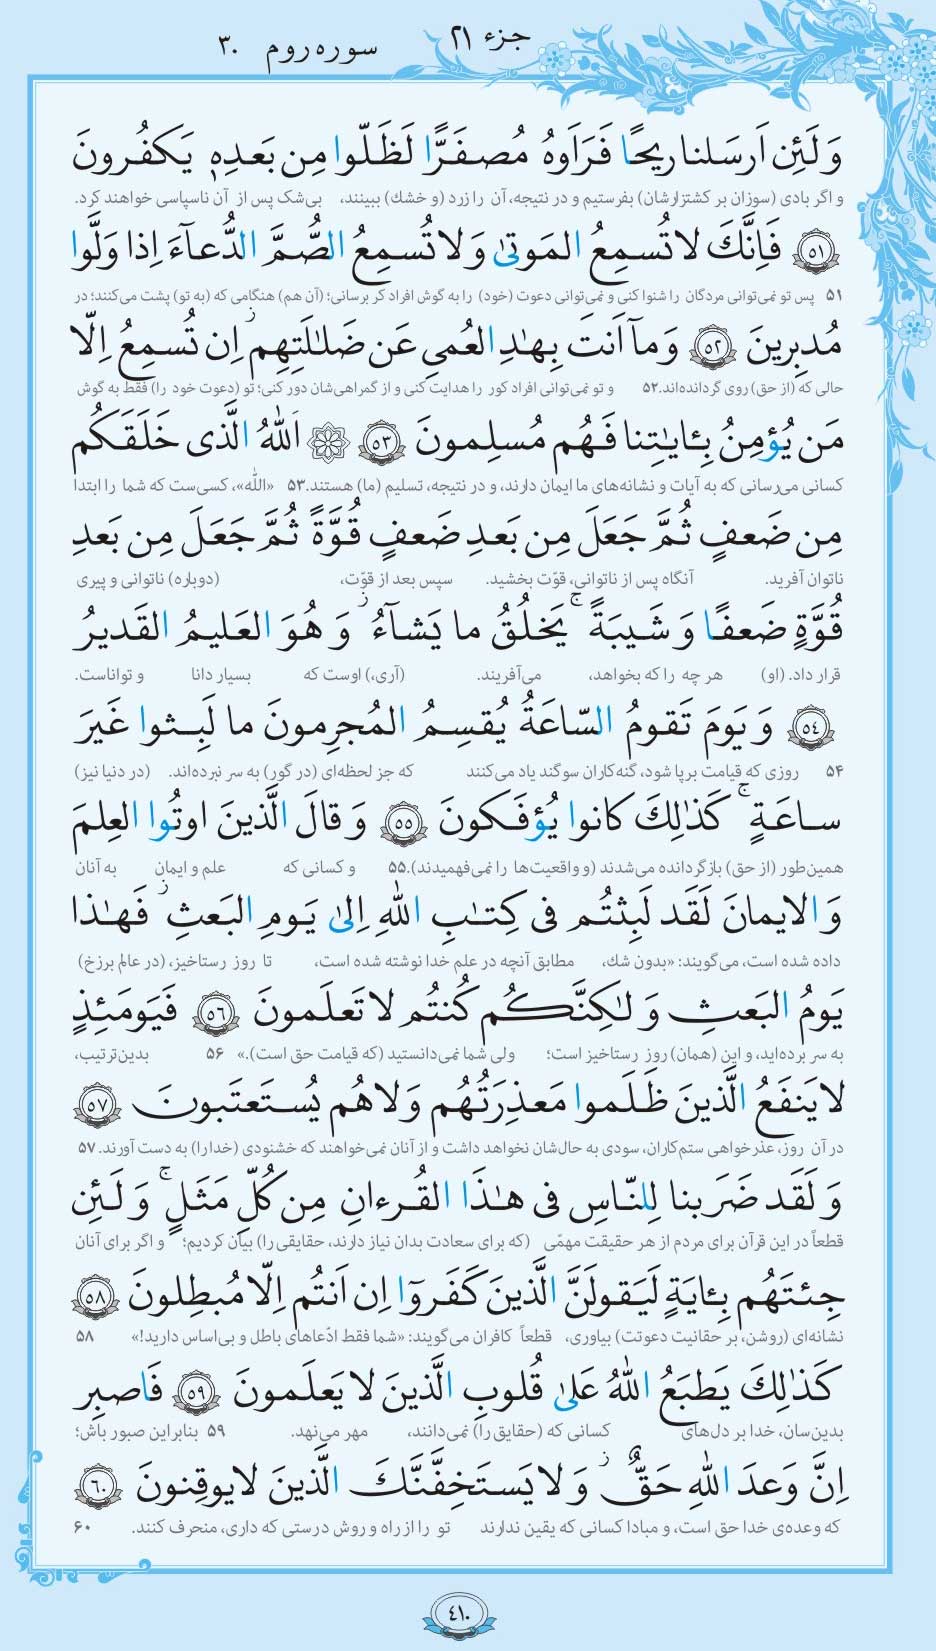 جزء ۲۱
سوره روم ۳۰
وَ لَئِن اَرسَلنا ريحًا فَرَاَوهُ مُصفَرًّا لَظَلّوا مِن بَعدِهٖ يَكفُرونَ
و اگر بادی (سوزان بر کشتزارشان) بفرستیم و در نتیجه، آن را زرد (و خشك) ببینند، بی‌شک پس از آن ناسپاسی خواهند کرد.
﴿٥١﴾ فَاِنَّكَ لا تُسمِعُ المَوتىٰ وَ لا تُسمِعُ الصُّمَّ الدُّعآءَ اِذا وَلَّوا
۵۱ پس تو نمی‌توانی مردگان را شنوا کنی و نمی‌توانی دعوت (خود) را به گوش افراد کر برسانی؛ (آن هم) هنگامی که (به تو) پشت می‌کنند؛ در
مُدبِرينَ ﴿٥٢﴾ وَ مآ اَنتَ بِهٰدِ العُمىِ عَن ضَلٰلَتِهِم ۖ اِن تُسمِعُ اِلّا
حالی که (از حق) روی گردانده‌اند.۵۲ و تو نمی‌توانی افراد کور را هدایت کنی و از گمراهی‌شان دور کنی؛ تو (دعوت خود را) فقط به گوش
مَن يُؤمِنُ بِـٔايٰتِنا فَهُم مُسلِمونَ ﴿٥٣﴾ اَللهُ الَّذى خَلَقَكُم
کسانی می‌رسانی که به آیات و نشانه‌های ما ایمان دارند، و در نتیجه، تسلیم (ما) هستند.۵۳ «اللّٰه»، کسی‌ست که شما را ابتدا
مِن ضَعفٍ ثُمَّ جَعَلَ مِن بَعدِ ضَعفٍ قُوَّةً ثُمَّ جَعَلَ مِن بَعدِ
ناتوان آفرید. آنگاه پس از ناتوانی، قوّت بخشید. سپس بعد از قوّت، (دوباره) ناتوانی و پیری
قُوَّةٍ ضَعفًا وَ شَيبَةً ۚ يَخلُقُ ما يَشآءُ ۖ وَ هُوَ العَليمُ القَديرُ
قرار داد. (او) هر چه را که بخواهد، می‌آفریند. (آری،) اوست که بسیار دانا و تواناست.
﴿٥٤﴾ وَ يَومَ تَقومُ السّاعَةُ يُقسِمُ المُجرِمونَ ما لَبِثوا غَيرَ
۵۴ روزی که قیامت برپا شود، گنه‌کاران سوگند یاد می‌کنند که جز لحظه‌ای (در گور) به سر نبرده‌اند. (در دنیا نیز)
ساعَةٍ ۚ كَذٰلِكَ كانوا يُؤفَكونَ ﴿٥٥﴾ وَ قالَ الَّذينَ اوتُوا العِلمَ
همین‌طور (از حق) بازگردانده می‌شدند (و واقعیت‌ها را نمی‌فهمیدند).۵۵ و کسانی که علم و ایمان به آنان
وَ الايمانَ لَقَد لَبِثتُم فى كِتٰبِ اللهِ اِلىٰ يَومِ البَعثِ ۖ فَهٰذا
داده شده است، می‌گویند: «بدون شك، مطابق آنچه در علم خدا نوشته شده است، تا روز رستاخیز، (در عالم برزخ)
يَومُ البَعثِ وَ لٰكِنَّكُم كُنتُم لا تَعلَمونَ ﴿٥٦﴾ فَيَومَئِذٍ
به سر برده‌اید، و این (همان) روز رستاخیز است؛ ولی شما نمی‌دانستید (که قیامت حق است).» ۵۶ بدین‌ترتیب،
لا يَنفَعُ الَّذينَ ظَلَموا مَعذِرَتُهُم وَ لا هُم يُستَعتَبونَ ﴿٥٧﴾
در آن روز، عذرخواهی ستم‌کاران، سودی به حال‌شان نخواهد داشت و از آنان نمی‌خواهند که خشنودی (خدا را) به دست آورند. ۵۷
وَ لَقَد ضَرَبنا لِلنّاسِ فى هٰذَا القُرءانِ مِن كُلِّ مَثَلٍ ۚ وَ لَئِن
قطعاً در این قرآن برای مردم از هر حقیقت مهمّی (که برای سعادت بدان نیاز دارند، حقایقی را) بیان کردیم؛ و اگر برای آنان
جِئتَهُم بِـٔايَةٍ لَيَقولَنَّ الَّذينَ كَفَروٓا اِن اَنتُم اِلّا مُبطِلونَ ﴿٥٨﴾
نشانه‌ای (روشن، بر حقانیت دعوتت) بیاوری، قطعاً کافران می‌گویند: «شما فقط ادّعاهای باطل و بی‌اساس دارید!» ۵۸
كَذٰلِكَ يَطبَعُ اللهُ عَلىٰ قُلوبِ الَّذينَ لا يَعلَمونَ ﴿٥٩﴾ فَاصبِر
بدین‌سان، خدا بر دل‌های کسانی که (حقایق را) نمی‌دانند، مهر می‌نهد. ۵۹ بنابراین صبور باش؛
اِنَّ وَعدَ اللهِ حَقٌّ ۖ وَ لا يَستَخِفَّنَّكَ الَّذينَ لا يوقِنونَ ﴿٦٠﴾
که وعده‌ی خدا حق است، و مبادا کسانی که یقین ندارند تو را از راه و روش درستی که داری، منحرف کنند. ۶۰
٤١٠